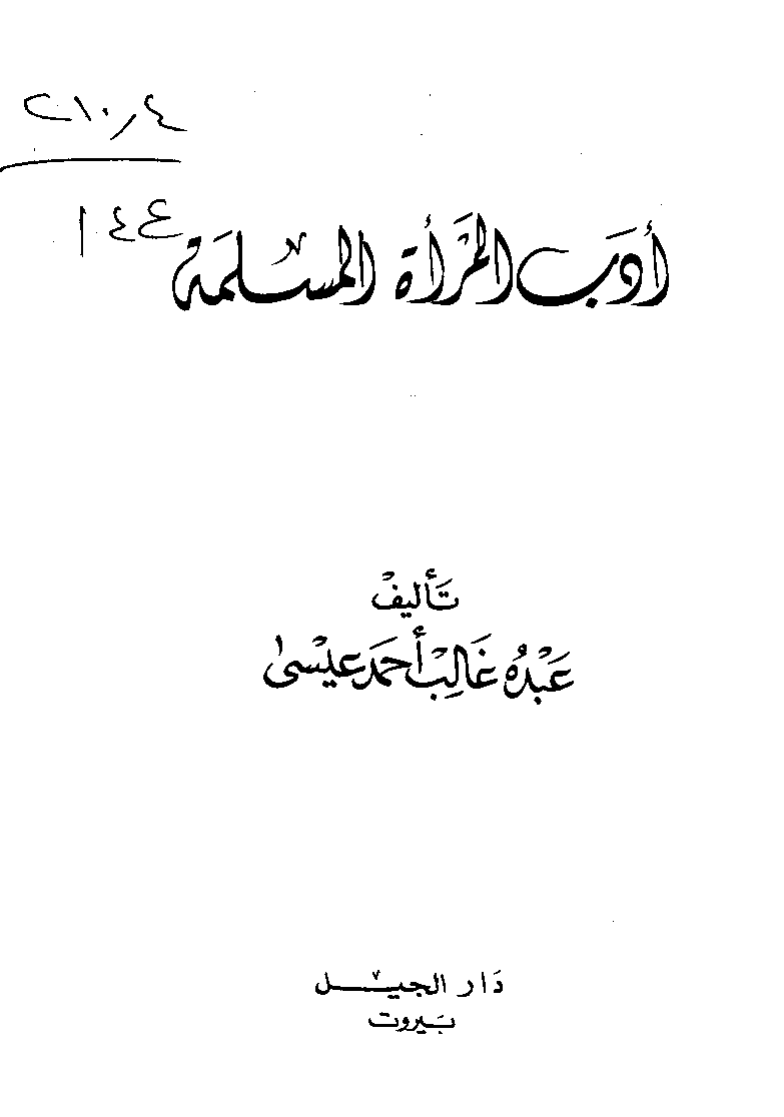 ٢١٠٫٤
ع ٤ ا
أدَب المَرأة المسلمَة
تَأليفْ
عَبْدُه غَالِبْ أحمَد عيْسىٰ
دَار الجيْـل
بَيروت